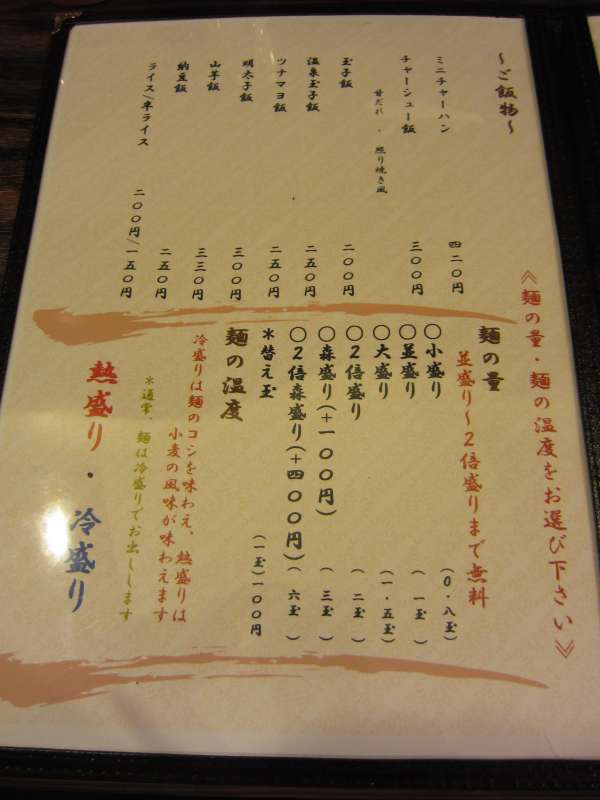 ～ご飯物～
ミニチャーハン 四二〇円
チャーシュー飯 三〇〇円
甘だれ ・ 照り焼き風
玉子飯 二〇〇円
温泉玉子飯 二五〇円
ツナマヨ飯 二五〇円
明太子飯 三〇〇円
山芋飯 三三〇円
納豆飯 二五〇円
ライス/半ライス 二〇〇円/一五〇円
《麺の量・麺の温度をお選び下さい》
麺の量
並盛り～2倍盛りまで無料
〇小盛り (0・八玉)
〇並盛り (一玉)
〇大盛り (一・五玉)
〇2倍盛り (二玉)
〇森盛り(+一〇〇円) (三玉)
〇2倍森盛り(+四〇〇円) (六玉)
*替え玉 (一玉)一〇〇円
麺の温度
冷盛りは麺のコシを味わえ、熱盛りは
小麦の風味が味わえます
*通常、麺は冷盛りでお出しします
熱盛り・冷盛り